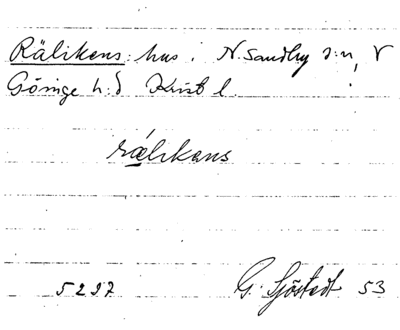 Rälikens: hus i N. Sandby s:n, V
Göinge h:d Krist l.
rälikans
5297 G. Sjöstedt 53